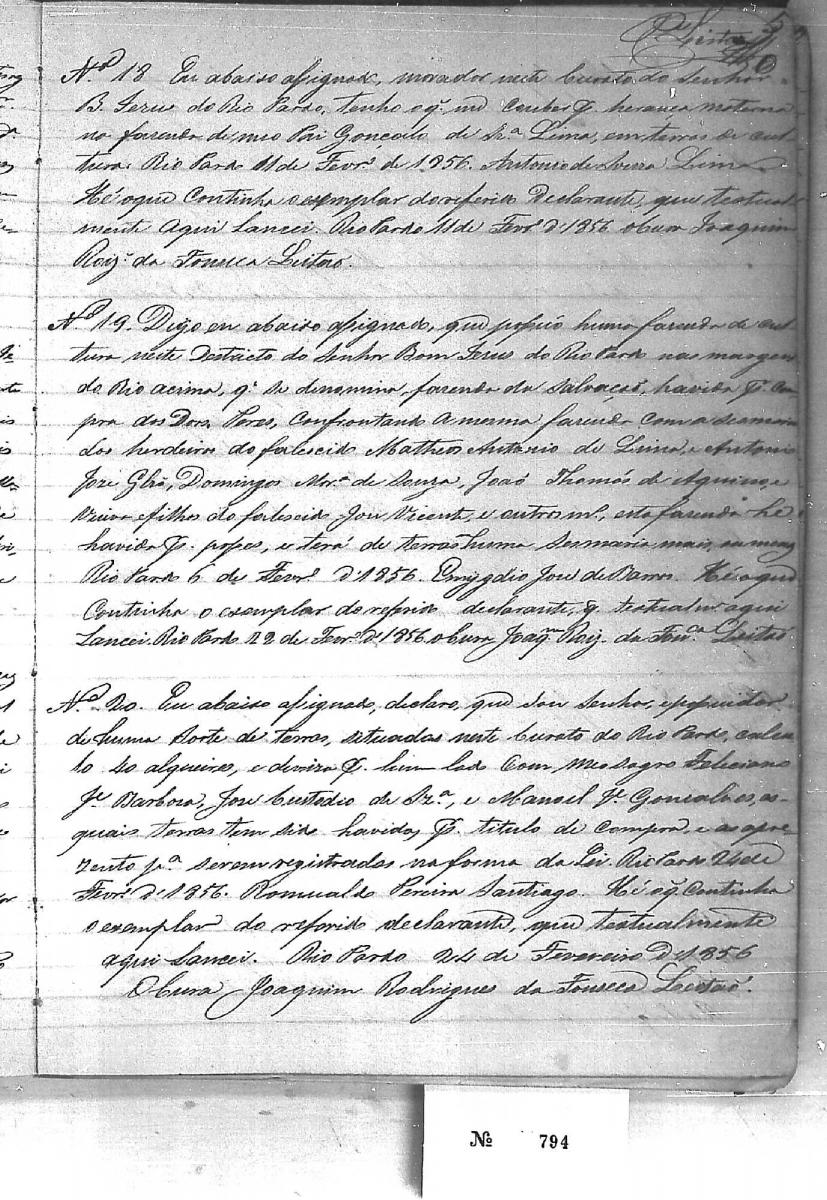 Leitão
Nº 18 Eu abaixo assignado, morador neste Curato do Senhor
B. Jezus do Rio Pardo, tenho o q. me coube p. herança materna
na fazenda de meo Pai Gonçalo de Sza. Lima, em terras de cul-
tura. Rio Pardo 11 de Fevrº. de 1856. Antonio de Souza Lima
Hé o que Continha o exemplar do referido Declarante, que textual-
mente aqui Lancei. Rio Pardo 11 de Fevrº. d'1856 o Cura Joaquim
Roiz. da Fonseca Leitaõ.
Nº 19. Digo eu abaixo assignado, que possúo huma fazenda de cul-
tura, neste Destricto do Senhor Bom Jezus do Rio Pardo nas margens
do Rio acima, q. se denomina, fazenda da Salvaçaõ, havida p. com-
pra dos Confrontando a mesma fazenda com a sesmaria
dos herdeiros do falescido Matheus Antonio de Lima, e Antonio
Joze Domingos Mora. de Souza, Joaõ Thomás de Aquino, e
Viuva e filhos do falescido Joze Vicente, e outros m., esta fazenda hé
havida p. posses, e terá de terras huma sesmaria mais, ou menos
Rio Pardo 6 de Fevrº. d'1856. Emygdio Joze de Barros. Hé o que
Continha o exemplar do referido declarante, q. textualme. aqui
Lancei. Rio Pardo 22 de Fevrº. d'1856 o Cura Joaqm. Roiz. da Fonca. Leitaõ
Nº 20. Eu abaixo assignado, declaro, que sou Senhor, e possuidor
de huma sorte de terras, situadas neste Curato do Rio Pardo, calcu-
lo 40 alqueires, e deviza p. hum lado Com, meo sogro Feliciano
Je. Barboza, Joze Custodio de Sza., e Manoel Je. Gonsalves, as-
quais terras tem sido havidas p. titulo de compra, e as apre-
zento pa. serem registradas na forma da Lei. Rio Pardo 24 de
Fevrº. d'1856. Romualdo Pereira Santiago. Hé o q. Continha
o exemplar do referido declarante, que textualmente
aqui Lancei. Rio Pardo 24 de Fevereiro D'1856
O Cura Joaquim Rodrigues da Fonseca Leitaõ.
Nº 794